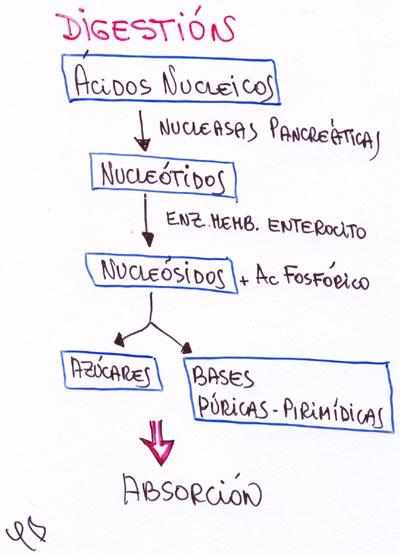 DIGESTIÓN
ÁCIDOS NUCLEICOS
NUCLEASAS PANCREÁTICAS
NUCLEÓTIDOS
ENZ. MEMB. ENTEROCITO
NUCLEÓSIDOS + AC FOSFÓRICO
AZÚCARES
BASES
PÚRICAS - PIRIMÍDICAS
ABSORCIÓN